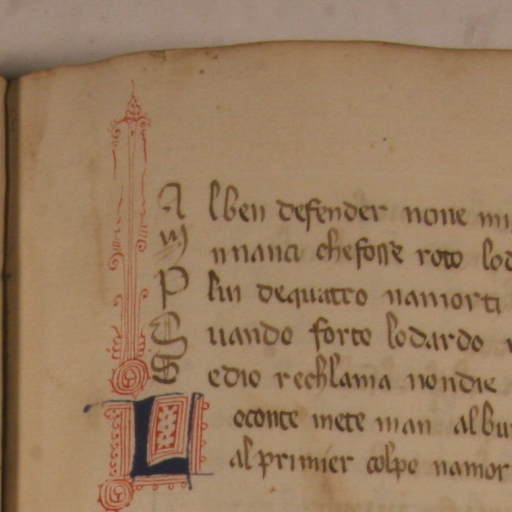 A lben defender none
nnanci che fosse roto
P lui dequatro namorti
uando forte lodardo
S edio rechlama nondie
L oconte mete man al
al primier colpo namor